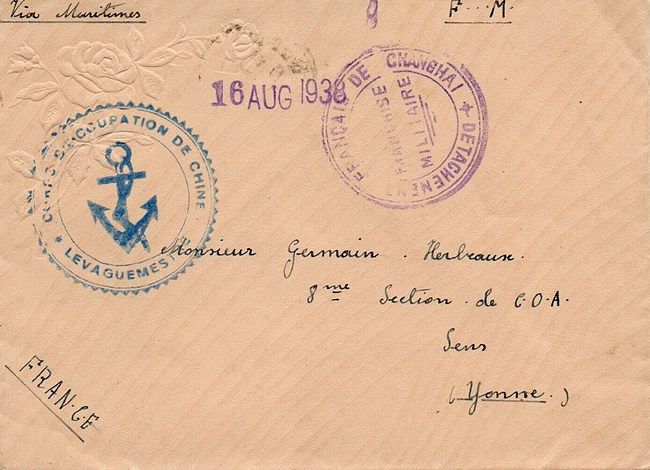 Via Maritimes
F...M.
16 AUG 1938
DETACHEMENT FRANÇAIS DE CHANGHAI
FRANCHISE
MILITAIRE
CORPS D'OCCUPATION DE CHINE
* LE VAGUEMESTRE
Monsieur Germain. Herbeaux.
8me Section. de C.O.A.
Sens
(Yonne.)
FRANCE